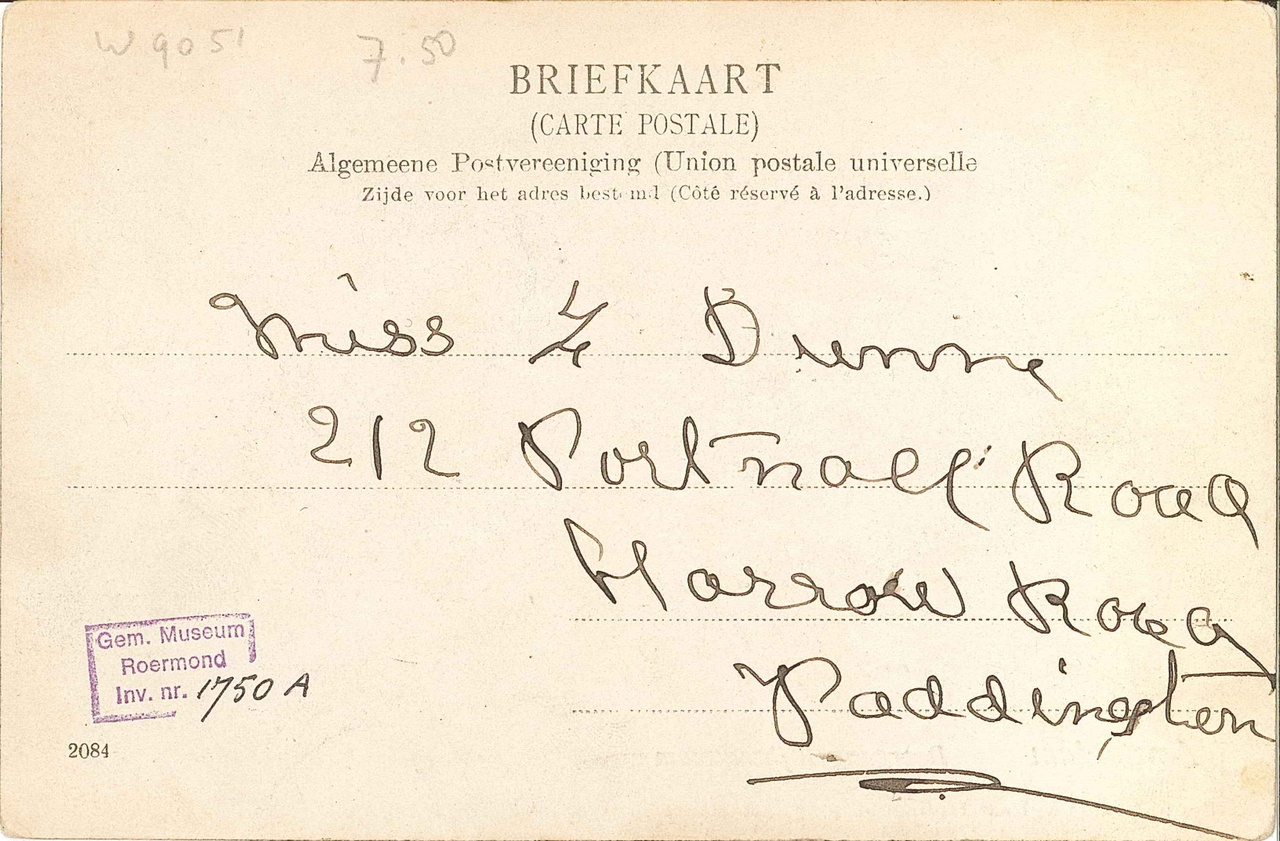 W 9051 7.50
BRIEFKAART
(CARTE POSTALE)
Algemeene Postvereeniging (Union postale universelle
Zijde voor het adres bestemd (Côté réservé à l'adresse.)
Miss Dunne
212 Portnall Road
Harrow Road
Paddington
Gem. Museum
Roermond
Inv. nr. 1750 A
2084